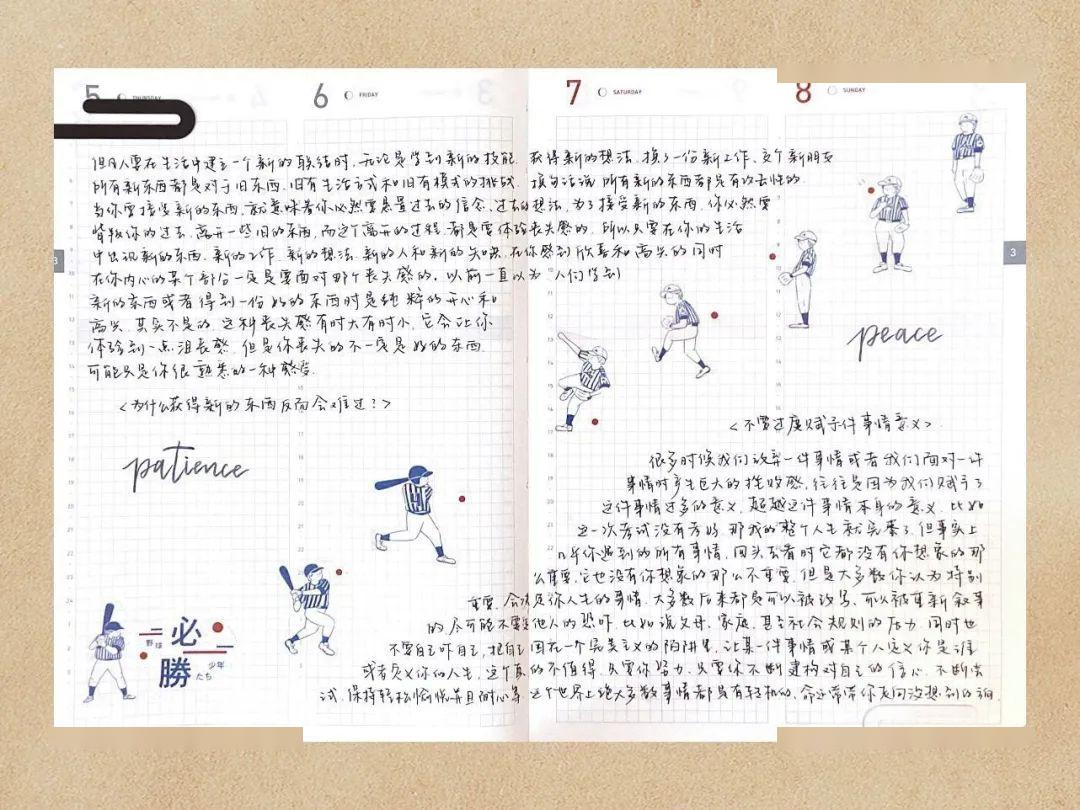 5 THURSDAY
6 FRIDAY
7 SATURDAY
8 SUNDAY
但凡人要在生活中建立一个新的联结时,无论是学到新的技能,获得新的想法,换了一份新工作,交个新朋友
所有新东西都是对于旧东西,旧有生活方式和旧有模式的挑战,换句话说 所有新的东西都是有攻击性的.
当你要接受新的东西,就意味着你必然要悬置过去的信念、过去的想法,为了接受新的东西,你必然要
背叛你的过去,离开一些旧的东西,而这个离开的过程,都是要体验丧失感的,所以只要在你的生活
中出现新的东西,新的工作,新的想法,新的人和新的知识,在你感到欣喜和高兴的同时
在你内心的某个部分一定是要面对那个丧失感的,以前一直以为人们学到
新的东西或者得到一份好的东西时是纯粹的开心和
高兴,其实不是的,这种丧失感有时大有时小,它会让你
体验到一点沮丧感,但是你丧失的不一定是好的东西.
可能只是你很熟悉的一种感受.
<为什么获得新的东西反而会难过?>
patience
peace
3
3
<不要过度赋予件事情意义>
很多时候我们放弃一件事情或者我们面对一件
事情时产生巨大的挫败感,往往是因为我们赋予了
这件事情过多的意义,超越这件事情本身的意义,比如
这一次考试没有考好,那我的整个人生就完蛋了,但事实上
几乎你遇到的所有事情,回头去看时它都没有你想象的那
么重要,它也没有你想象的那么不重要,但是大多数你认为特别
重要,会 你人生的事情,大多数后来都是可以被改写,可以被重新叙事
的,尽可能不要 他人的恐吓,比如说父母,家庭,甚至社会规则的压力,同时也
不要自己吓自己,把自己 困在一个完美主义的陷阱里,让某一件事情或某个人定义你是谁
或者定义你的人生,这个真的不值得,只要你努力,只要你不断建构对自己的信心,不断尝
试,保持轻松愉悦并且耐心等 这个世界上绝大多数事情都是有转机的,命运常常带你走向没想到的方向.
必勝
野球
少年たち